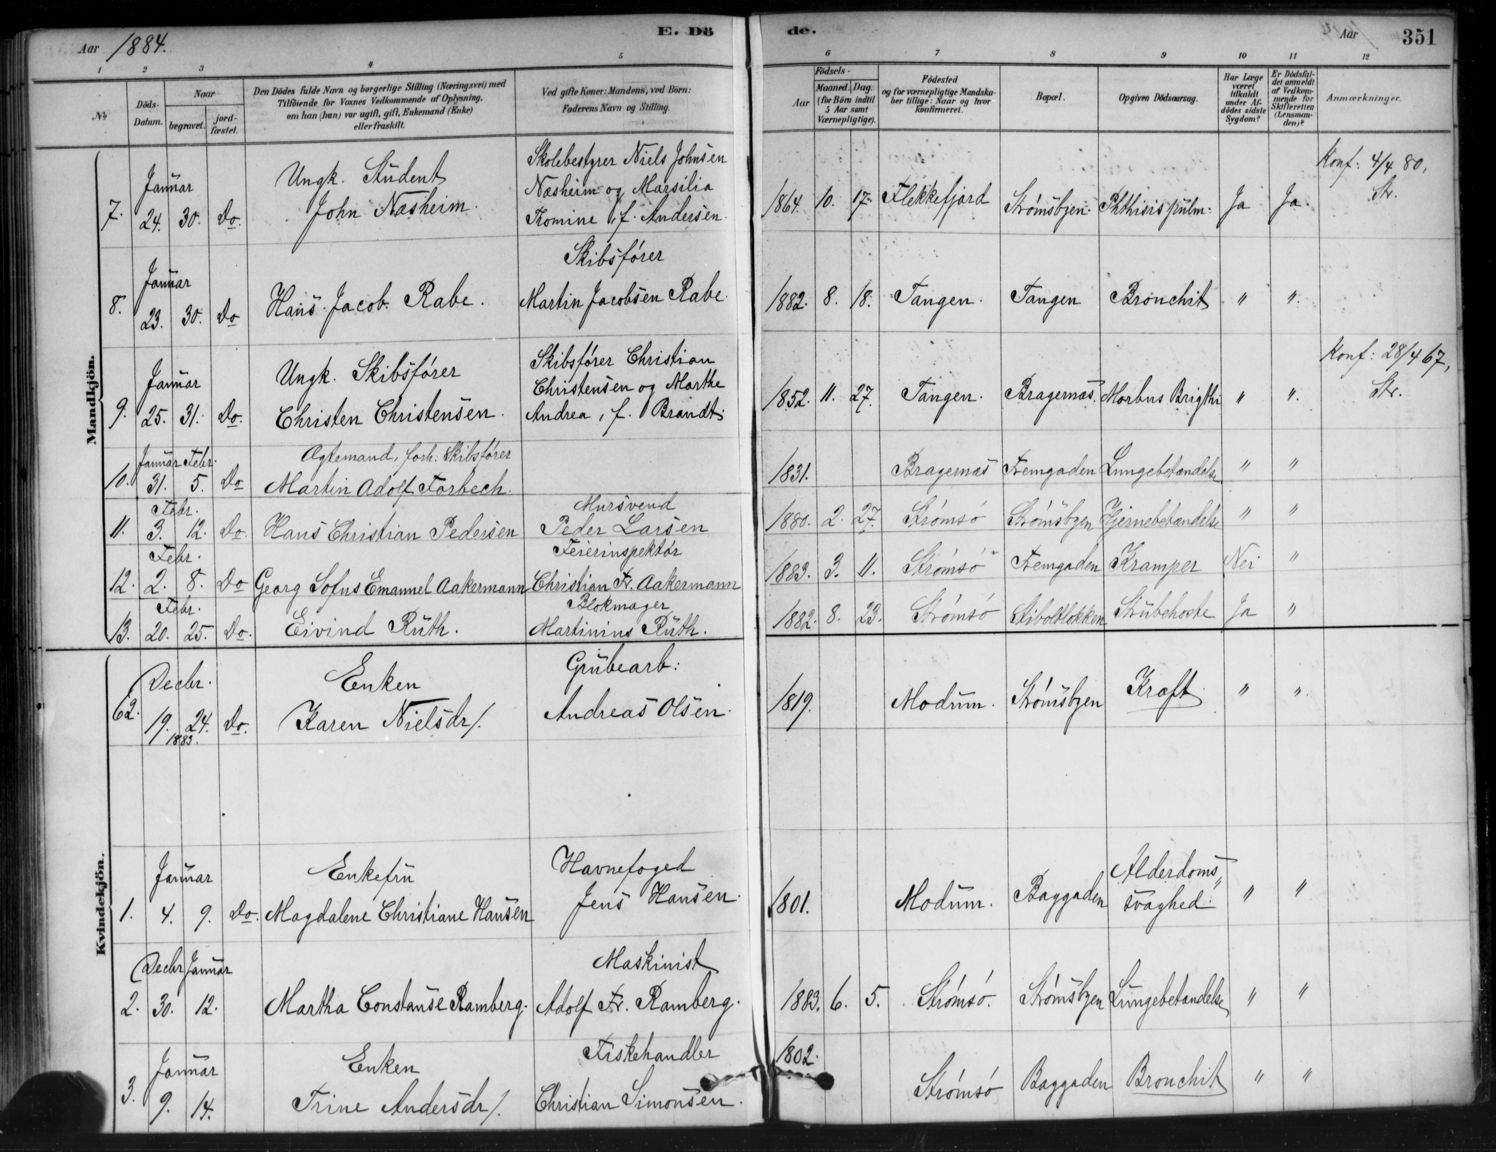 Aar 1884. E. Dö de. Aar 351
1 2 3 4 5 6 7 8 9 10 11 12
No
Döds-Datum.
Naar
begravet.
jord-fæstet.
Den Dödes fulde Navn og borgerlige Stilling (Næringsvei) med
Tilföiende for Voxnes Vedkommende af Oplysning,
om han (hun) var ugift, gift, Enkemand (Enke)
eller fraskilt.
Ved gifte Koner: Mandens, ved Börn:
Faderens Navn og Stilling.
Födsels-
Aar
Maaned.
Dag.
(for Börn indtil
5 Aar samt
Værnepligtige).
Födested
og for værnepligtige Mandska-
ber tillige: Naar og hvor
Konfirmeret.
Bopæl.
Opgiven Dödsaarsag.
Har Læge
været
tilkaldt
under Af-
dödes sidste
Sygdom?
Er Dödsfal-
det anmeldt
af Vedkom-
mende for
Skifteretten
(Lensman-
den)?
Anmærkninger.
Mandkjön.
Januar Ungk. Student Skolebestyrer Niels Johnsen Konf: 4/4 80,
7. 24. 30. Do. John Næsheim. Næsheim og Marsilia 1864. 10. 17. Flekkefjord Strømsbyen. Phthisis pulm. Ja Ja Str.
Tomine f. Andersen.
Januar Skibsfører
8. 23. 30. Do Hans Jacob Rabe. Martin Jacobsen Rabe. 1882. 8. 18. Tangen. Tangen Bronchit " "
Januar Ungk. Skibsfører Skibsfører Christian Konf: 28/4 67,
Christensen og Marthe
9. 25. 31. Do. Christen Christensen. Andrea, f. Brandt. 1852. 11. 27. Tangen. Bragernæs. Morbus Brigthi " " Str.
Januar Febr. Ægtemand, forh. Skibsfører
10. 31. 5. Do Martin Adolf Forbech. 1831. Bragernæs Fremgaden Lungebetændelse " "
Febr. Mursvend
11. 3. 12. Do Hans Christian Pedersen Peder Larsen 1880. 2. 27. Strømsø Strømsbyen Hjernebetændelse " "
Febr. Feierinspektør
12. 2. 8. Do Georg Sofus Emanuel Aakermann Christian Fr. Aakermann 1883. 3. 11. Strømsø Fremgaden Kramper Nei "
Febr. Blokmager
13. 20. 25. Do. Eivind Rüth. Martinius Rüth. 1882. 8. 23. Strømsø Stiboltløkken Strubehoste Ja "
Kvindekjön.
Decbr. Enken Grubearb:
62. 19. 24. Do. Karen Nielsdr/. Andreas Olsen. 1819. Modum. Strømsbyen Kræft " "
1883.
Januar Enkefru Havnefoged Alderdoms
1. 4. 9. Do. Magdalene Christiane Hansen Jens Hansen. 1801. Modum. Baggaden svaghed. " "
Decbr Januar Maskinist
2. 30. 12. Martha Constanse Ramberg. Adolf Fr. Ramberg. 1883. 6. 5. Strømsø. Strømsbyen Lungebetændelse " "
Januar Enken Fiskehandler 1802.
3. 9. 14. Trine Andersdr/. Christian Simonsen. Strømsø Baggaden Bronchit " "